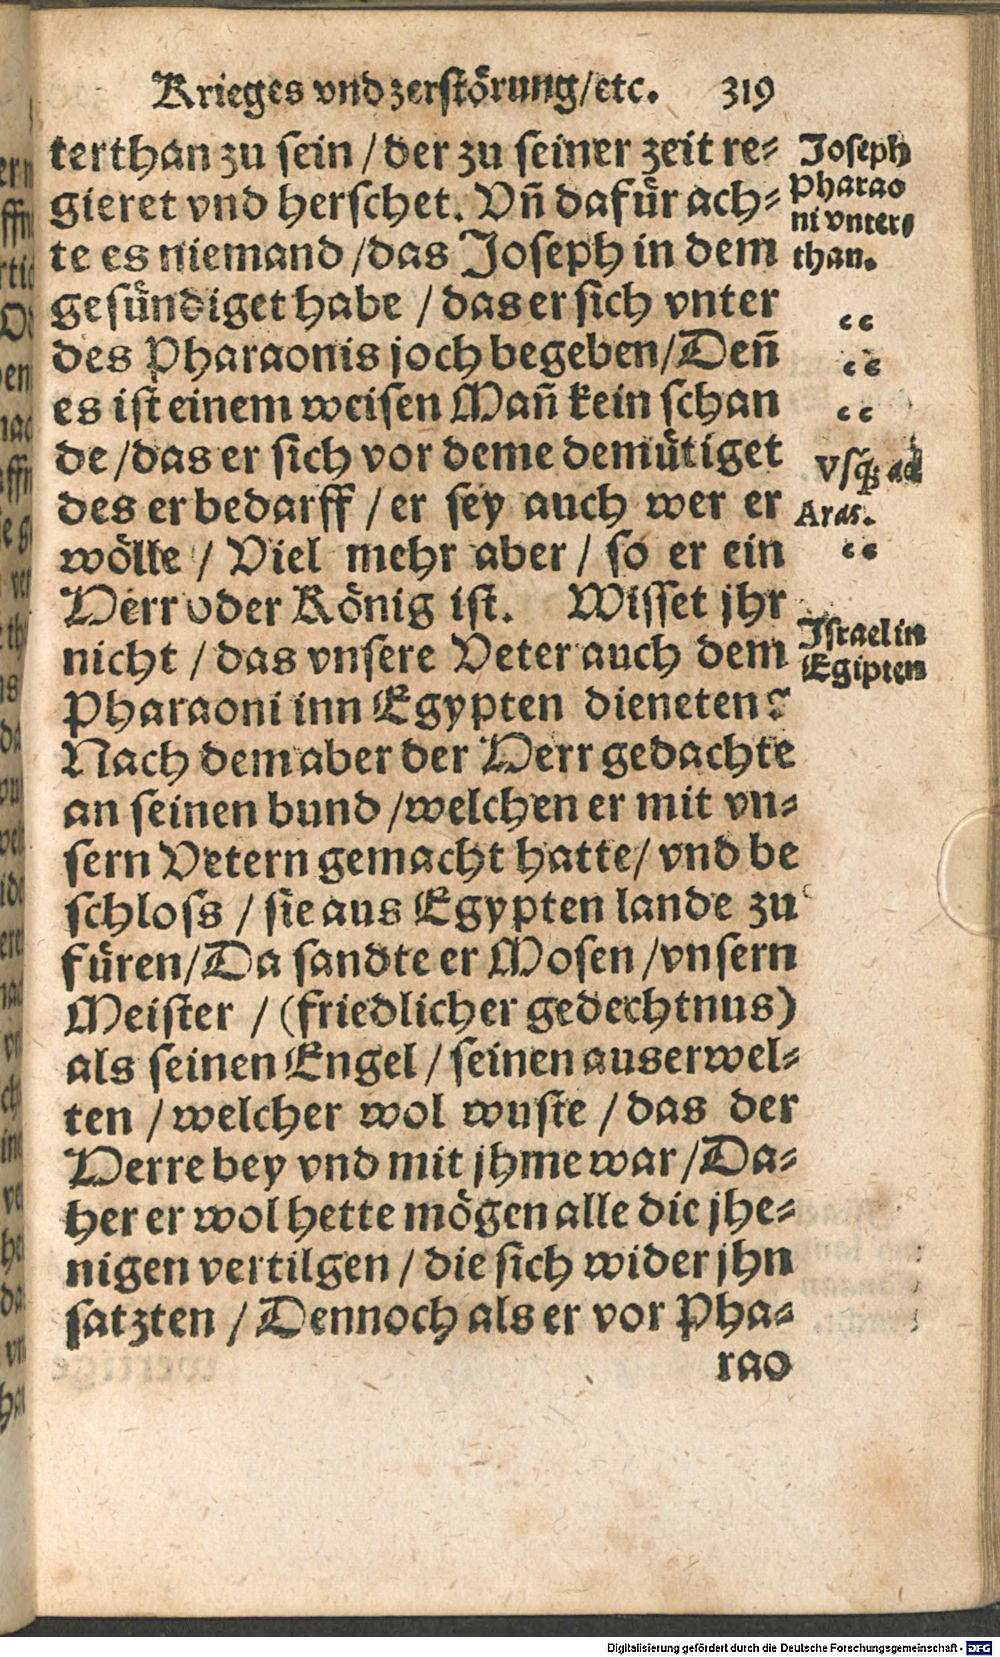 Krieges vnd zerstörung/etc. 319
terthan zu sein / der zu seiner zeit re⸗
gieret vnd herschet. Vñ dafür ach⸗
te es niemand /das Joseph in dem
gesündiget habe / das er sich vnter
des Pharaonis joch begeben/Deñ
es ist einem weisen Mañ kein schan
de /das er sich vor deme demütiget
des er bedarff / er sey auch wer er
wölle / Viel mehr aber / so er ein
Herr oder König ist. Wisset jhr
nicht / das vnsere Veter auch dem
Pharaoni inn Egypten dieneten?
Nach dem aber der Herr gedachte
an seinen bund /welchen er mit vn⸗
sern Vetern gemacht hatte/ vnd be
schloss / sie aus Egypten lande zu
füren/Da sandte er Mosen /vnsern
Meister / (friedlicher gedechtnus)
als seinen Engel / seinen auserwel⸗
ten / welcher wol wuste / das der
Herre bey vnd mit jhme war /Da⸗
her er wol hette mögen alle die jhe⸗
nigen vertilgen / die sich wider jhn
satzten / Dennoch als er vor Pha⸗
rao
Joseph
Pharao
ni vnter⸗
than.
“
“
“
Vsq; ad
Aras.
“
Israel in
Egipten
Digitalisierung gefördert durch die Deutsche Forschungsgemeinschaft - DFG